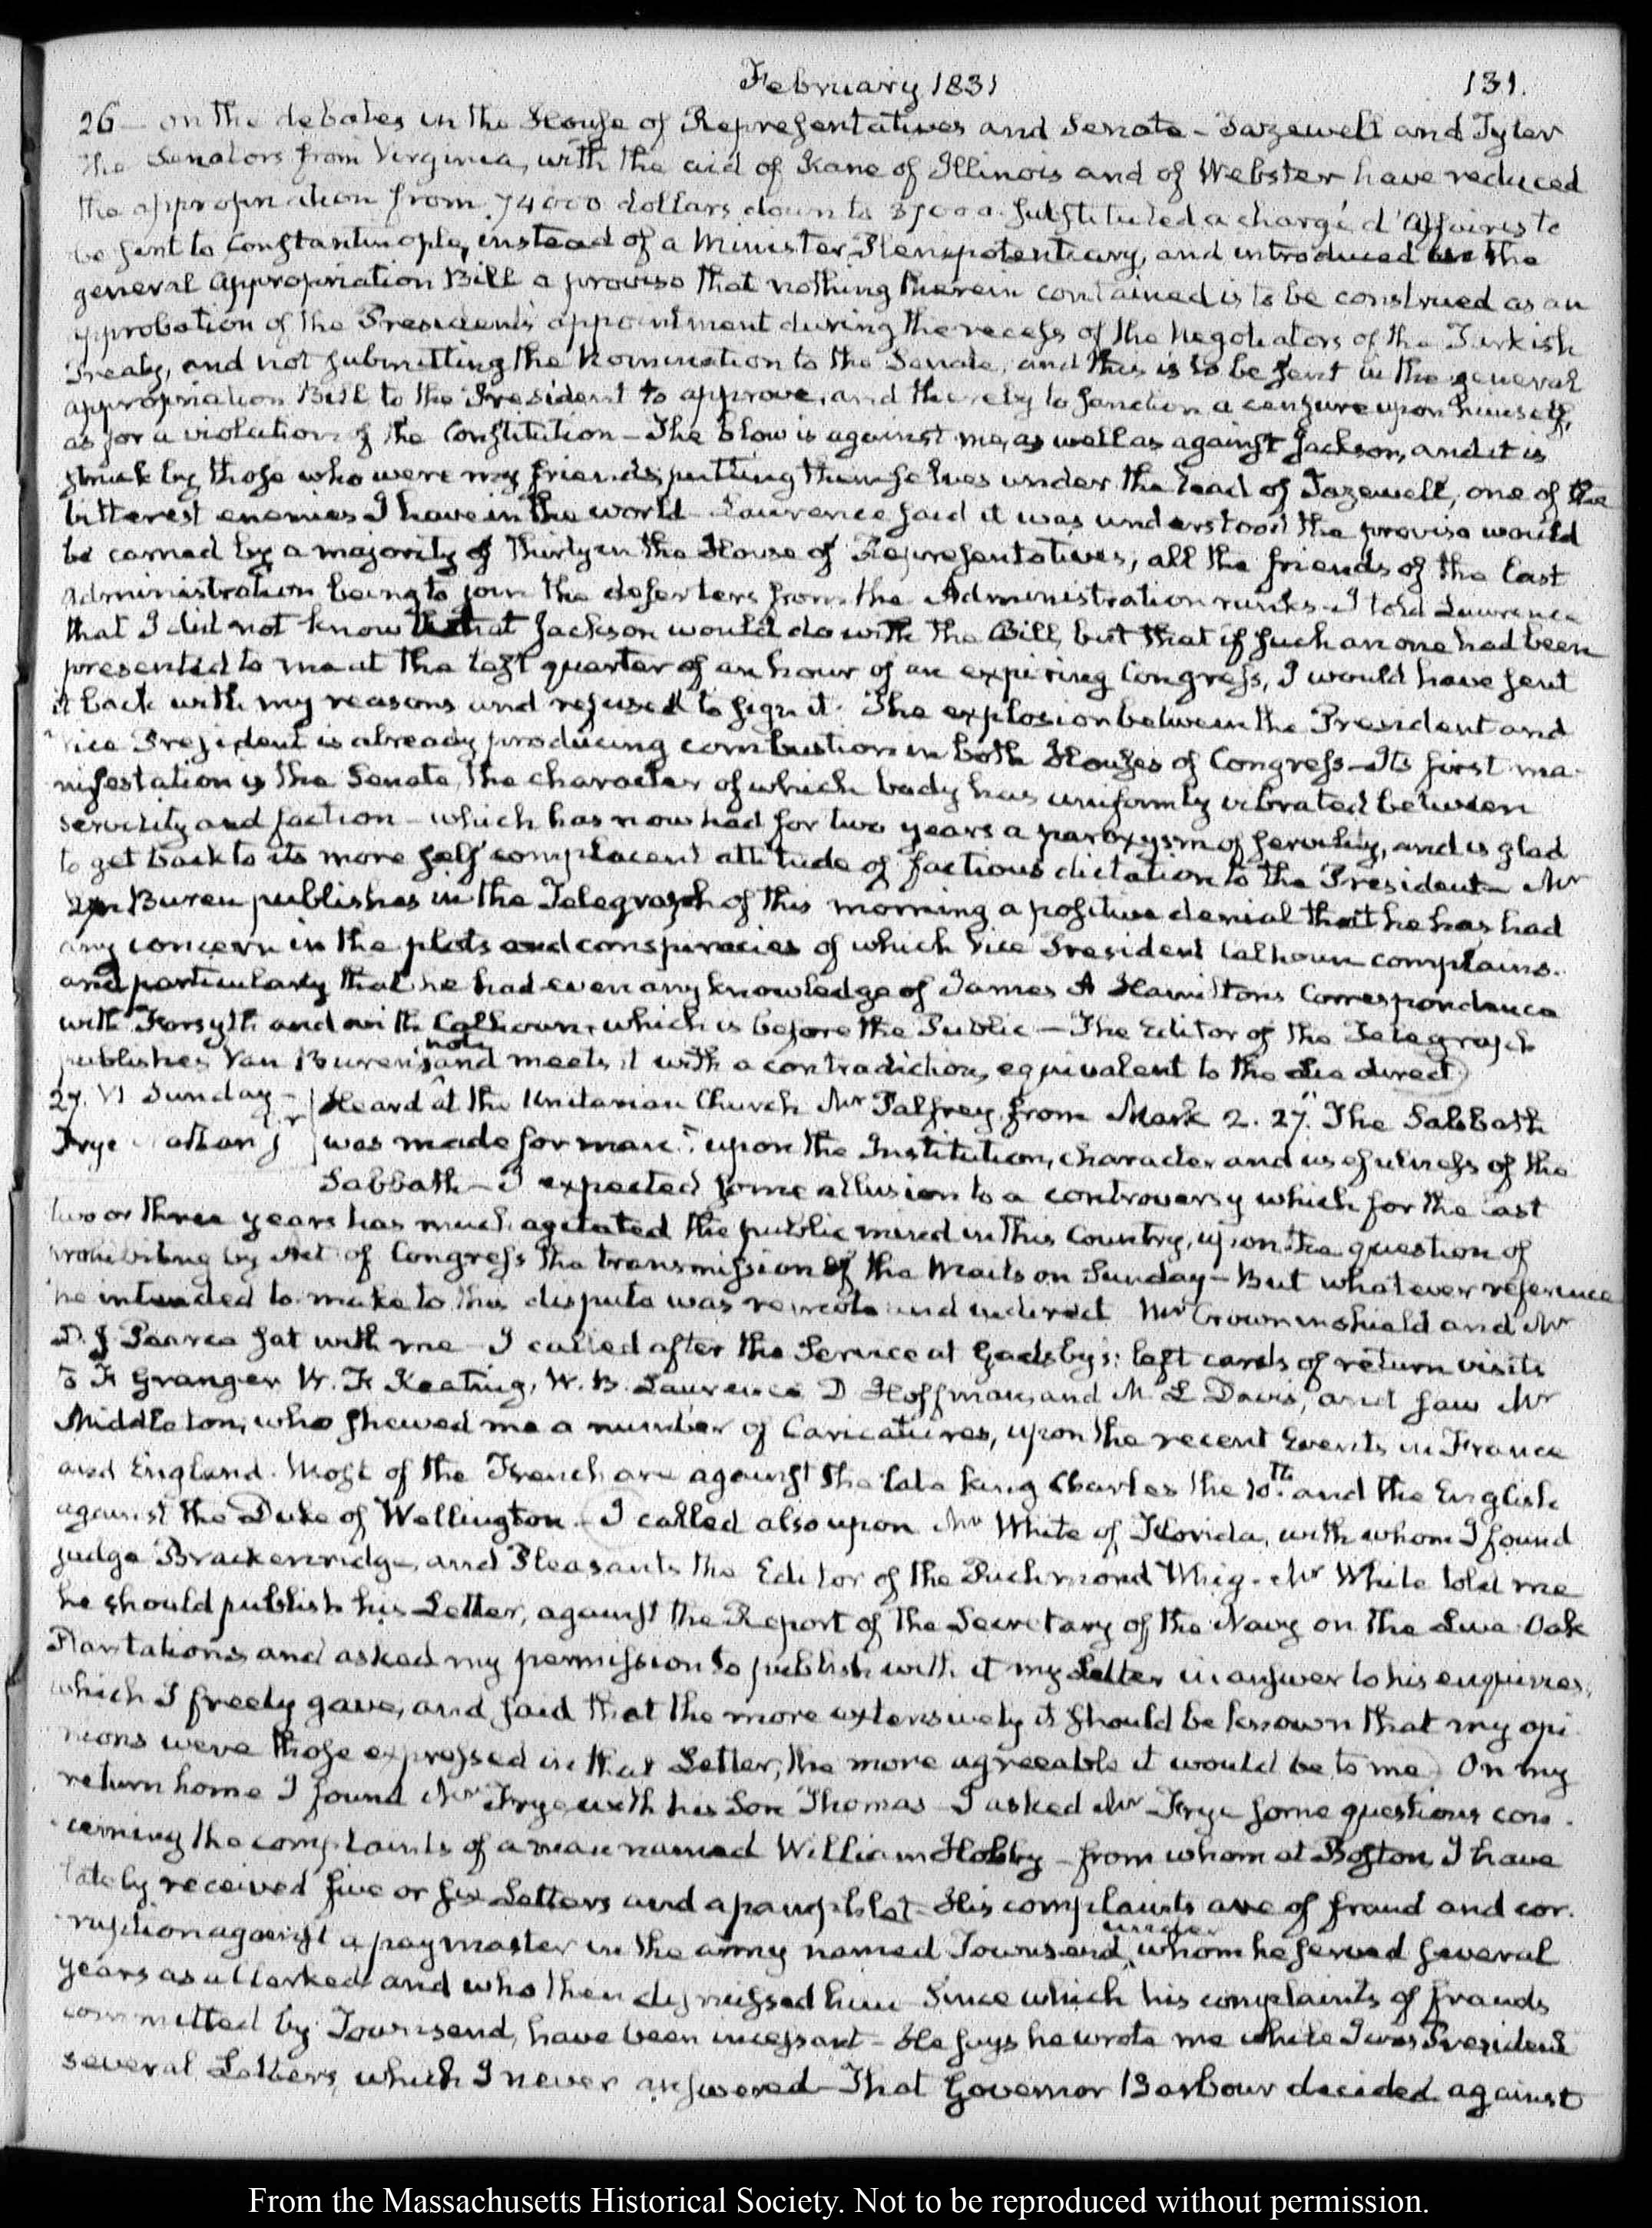 February 1831
131.
26 — on the debates in the House of Representatives and Senate – Tazewell and Tyler
the Senators from Virginia, with the aid of Kane of Illinois and of Webster have reduced
the appropriation from 74000 dollars down to substituted a chargé d'Affaires to
be sent to Constantinople, instead of a Minister Plenipotentiary, and introduced the
general Appropriation Bill a proviso that nothing therein contained is to be construed as an
approbation of the President's appointment during the recess of the Negotiators of the Turkish
Treaty, and not submitting the Nomination to the Senate, and this is to be sent in the general
appropriation Bill to the President to approve, and thereby to sanction a censure upon himself,
as for a violation of the Constitution – The blow is against me, as well as against Jackson, and it is
struck by those who were my friends, putting themselves under the lead of Tazewell, one of the
bitterest enemies I have in the world – Lawrence said it was understood the proviso would
be carried by a majority of thirty in the House of Representatives, all the friends of the last
Administration being to join the deserters from the Administration ranks – I told Lawrence
that I did not know what Jackson would do with the Bill, but that if such an one had been
presented to me at the last quarter of an hour of an expiring Congress, I would have sent
it back with my reasons and refused to sign it. The explosion between the President and
Vice President is already producing combustion in both Houses of Congress – Its first ma-
nifestation is the Senate, the character of which body has uniformly vibrated between
servility and faction – which has now had for two years a paroxysm of servility, and is glad
to get back to its more self complacent attitude of factious dictation to the President – Mr
Van Buren publishes in the Telegraph of this morning a positive denial that he has had
any concern in the plots and conspiracies of which Vice President Calhoun complains.
and particularly that he had even any knowledge of James A Hamilton's Correspondence
with Forsyth and with Calhoun, which is before the Public – The Editor of the Telegraph
publishes Van Buren's note and meets it with a contradiction, equivalent to the Lie direct
27. VI Sunday – Heard at the Unitarian Church Mr Palfrey, from Mark 2. 27. "The Sabbath
Frye Nathan Jr was made for man": upon the Institution, character and usefulness of the
Sabbath – I expected some allusion to a controversy which for the last
two or three years has much agitated the public mind in this Country, upon the question of
prohibiting by Act of Congress the transmission of the Mails on Sunday – But whatever reference
he intended to make to this dispute was remote and indirect Mr Crowninshield and Mr
D. J Pearce sat with me – I called after the Service at Gadsby's: left cards of return visits
to F Granger W. H Keating, W. B. Lawrence D Hoffman, and M. L Davis, and saw Mr
Middleton, who shewed me a number of Caricatures, upon the recent Events in France
and England. Most of the French are against the late king Charles the 10th. and the English
against the Duke of Wellington. – I called also upon Mr White of Florida, with whom I found
judge Brackenridge, and Pleasants the Editor of the Richmond Whig. Mr White told me
he should publish his Letter, against the Report of the Secretary of the Navy on the Live Oak
Plantations and asked my permission to publish with it my Letter in answer to his enquiries,
which I freely gave, and said that the more extensively it should be known that my opi-
nions were those expressed in that Letter, the more agreeable it would be to me. On my
return home I found Mr Frye with his Son Thomas – I asked Mr Frye some questions con-
cerning the complaints of a man named William Hobby – from whom at Boston, I have
lately received five or six Letters and a pamphlet – His complaints are of fraud and cor-
ruption against a paymaster in the army named Townsend, under whom he served several
years as a Clerk and who then dismissed him – Since which his complaints of frauds
committed by Townsend, have been incessant – He says he wrote me while I was President
several Letters, which I never answered – That Governor Barbour decided against
From the Massachusetts Historical Society. Not to be reproduced without permission.